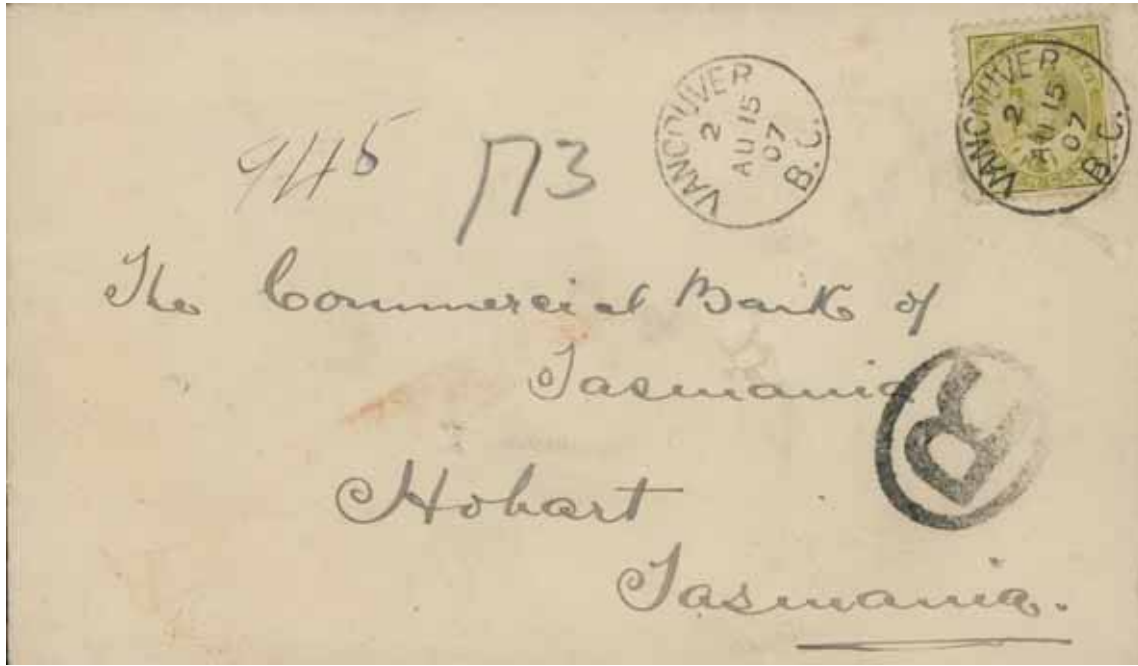 VANCOUVER
2
AU 15
07
B.C.
VANCOUVER
2
AU 15
07
B.C.
945 173
The Commercial Bank of
Tasmania
R
Hobart
Tasmania.